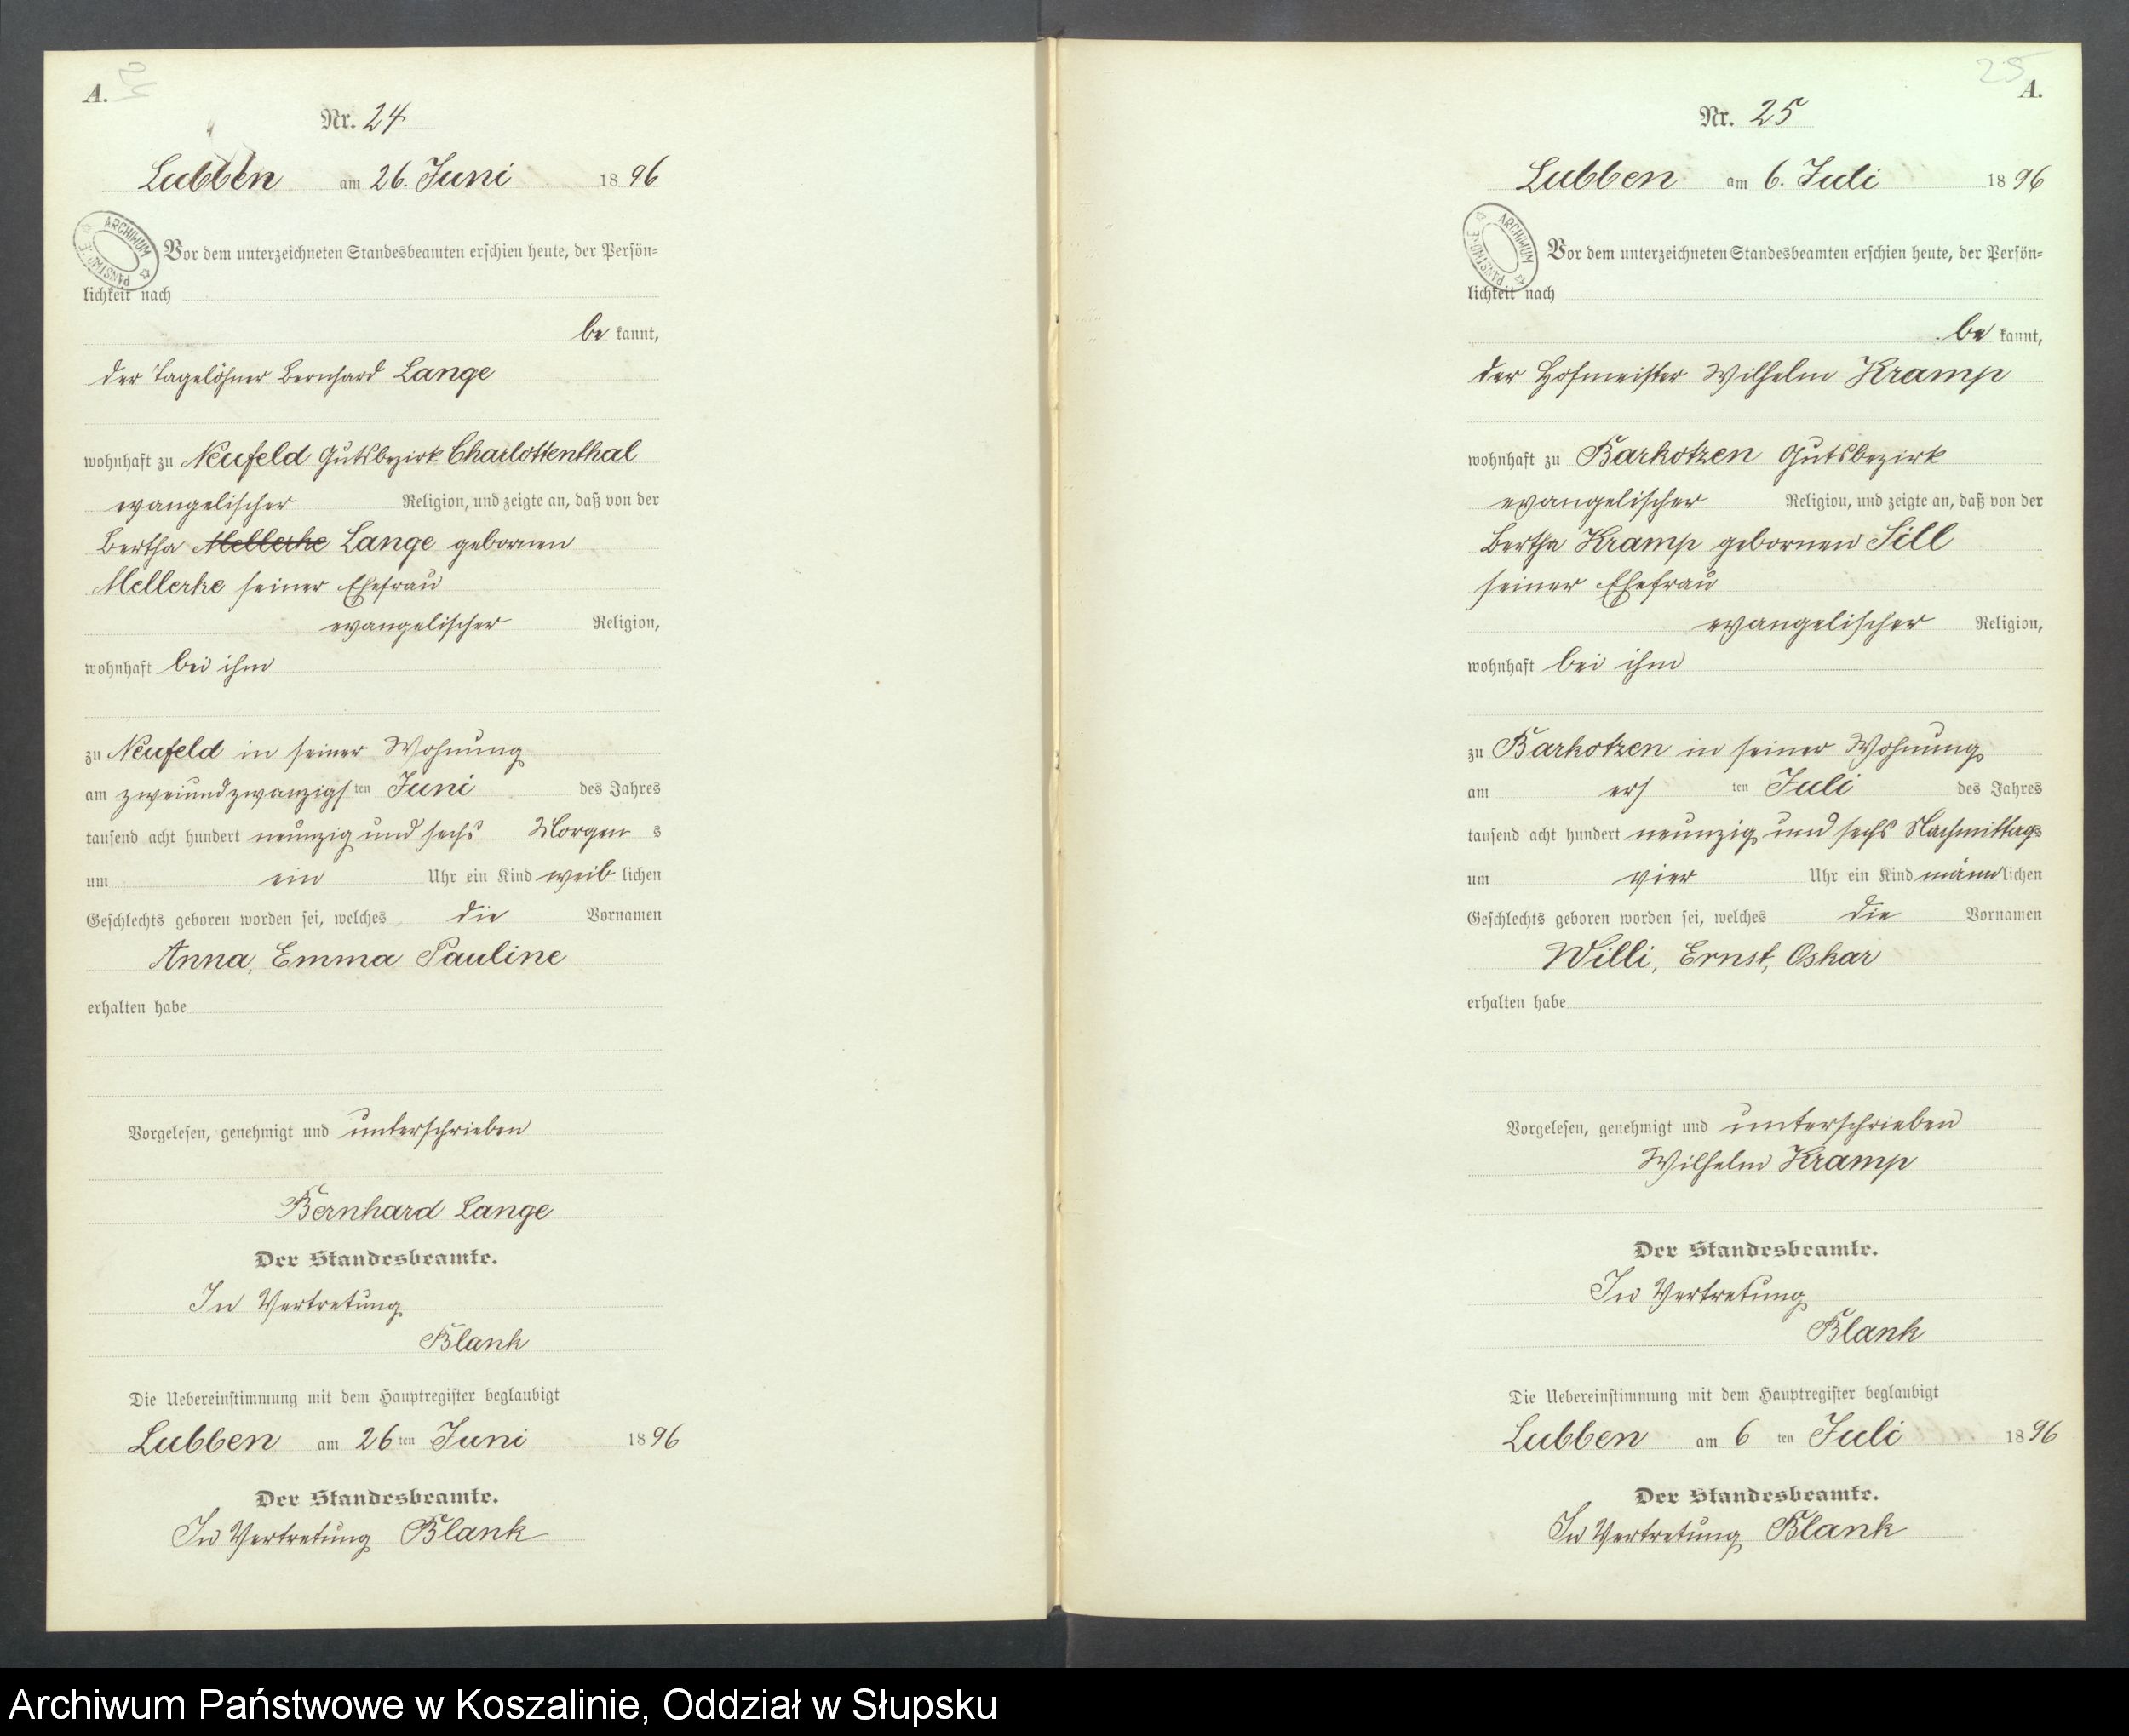 A.
Nr. 24
Lubben am 26. Juni 1896
ARCHIWUM PAŃSTWOWE
Vor dem unterzeichneten Standesbeamten erschien heute, der Persön=
lichkeit nach
be kannt,
der Tagelöhner Bernhard Lange
wohnhaft zu Neufeld Gutsbezirk Charlottenthal
evangelischer Religion, und zeigte an, daß von der
Bertha Mellerke Lange gebornen
Mellerke seiner Ehefrau
evangelischer Religion,
wohnhaft bei ihm
zu Neufeld in seiner Wohnung
am zweiundzwanzigsten Juni des Jahres
tausend acht hundert neunzig und sechs Morgens
um ein Uhr ein Kind weiblichen
Geschlechts geboren worden sei, welches die Vornamen
Anna, Emma Pauline
erhalten habe
Vorgelesen, genehmigt und unterschrieben
Bernhard Lange
Der Standesbeamte.
In Vertretung
Blank
Die Uebereinstimmung mit dem Hauptregister beglaubigt
Lubben am 26ten Juni 1896
Der Standesbeamte.
In Vertretung Blank
25
A.
Nr. 25
Lubben am 6. Juli 1896
ARCHIWUM PAŃSTWOWE
Vor dem unterzeichneten Standesbeamten erschien heute, der Persön=
lichkeit nach
be kannt,
der Hofmeister Wilhelm Kramp
wohnhaft zu Barkotzen Gutsbezirk
evangelischer Religion, und zeigte an, daß von der
Bertha Kramp gebornen Sill
seiner Ehefrau
evangelischer Religion,
wohnhaft bei ihm
zu Barkotzen in seiner Wohnung
am ersten Juli des Jahres
tausend acht hundert neunzig und sechs Nachmittags
um vier Uhr ein Kind männlichen
Geschlechts geboren worden sei, welches die Vornamen
Willi, Ernst, Oskar
erhalten habe
Vorgelesen, genehmigt und unterschrieben
Wilhelm Kramp
Der Standesbeamte.
In Vertretung
Blank
Die Uebereinstimmung mit dem Hauptregister beglaubigt
Lubben am 6 ten Juli 1896
Der Standesbeamte.
In Vertretung Blank
Archiwum Państwowe w Koszalinie, Oddział w Słupsku